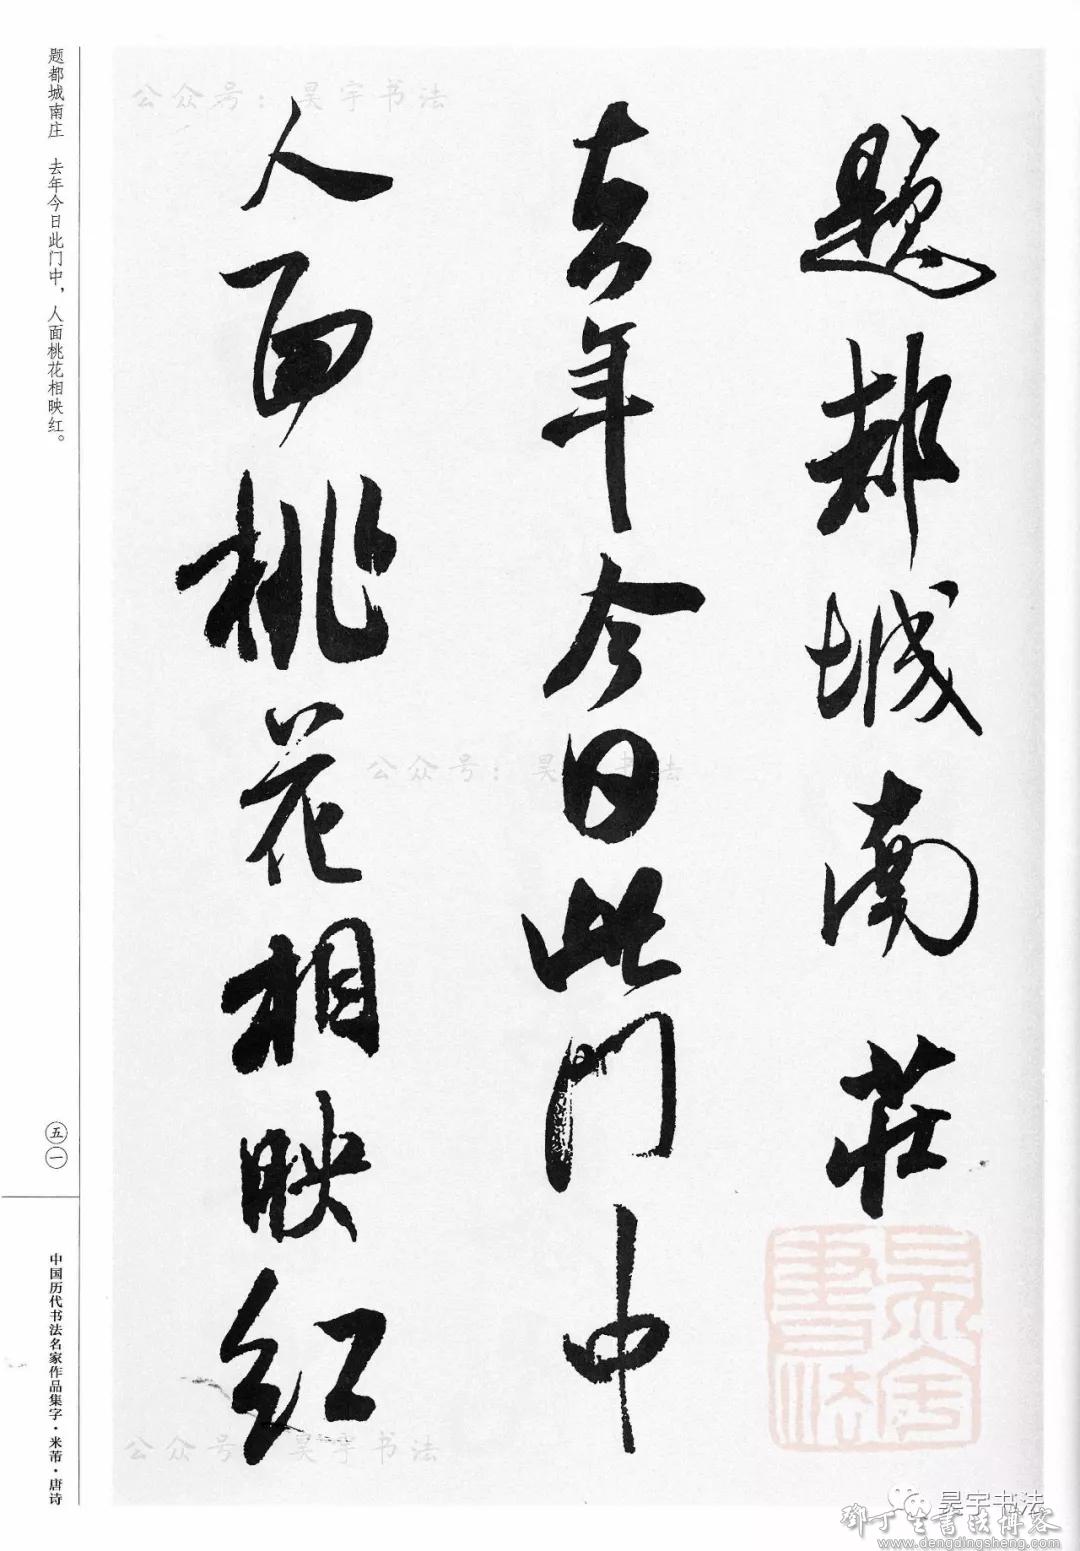 公众号：昊宇书法
題都城南莊
去年今日此门中
人面桃花相映红
题都城南庄　去年今日此门中，人面桃花相映红。
五一
中国历代书法名家作品集字·米芾·唐诗
公众号：昊宇书法
公众号：昊宇书法
昊宇書法
昊宇书法
鄧丁生書法博客
www.dengdingsheng.com